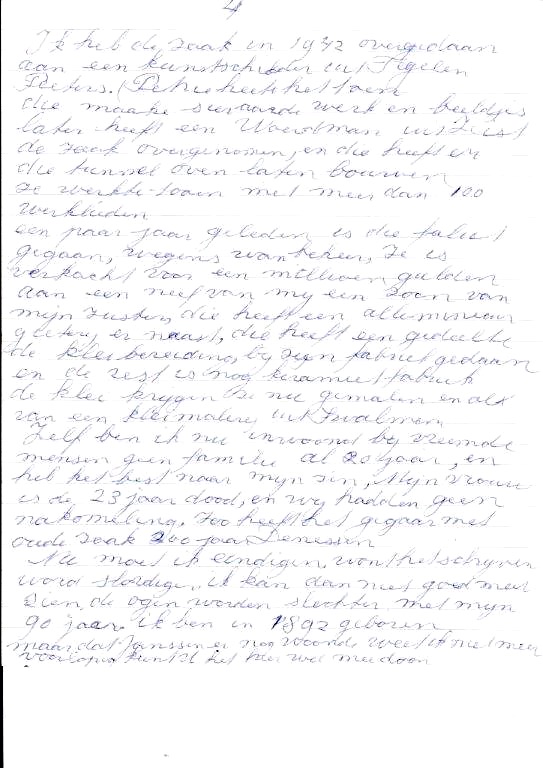 4
Ik heb de zaak in 1942 overgedaan
aan een kunstschilder uit Tegelen
Peeters. (Petri heette het toen
die maake sieraarde werk en beeldjes
later heeft een Woudman uit Zeist
de zaak overgenomen, en die heeft er
die tunnel oven laten bouwen
ze werkte toen met meer dan 100
werklieden
een paar jaar geleden is die faliet
gegaan, wegens wanbeheer, ze is
verkocht voor een millioen gulden
aan een neef van my een zoon van
mijn zuster, die heeft een alluminium
gieterij er naast, die heeft een gedeelte
de kleibereiding by zyn fabriek gedaan
en de rest is nog keramiekfabriek
de klei krygen ze nu gemalen en als
van een kleimalery uit Swalmen
Zelf ben ik nu inwoond by vreemde
mensen geen familie al 20 jaar, en
heb het best naar myn zin, Mijn vrouw
is de 23 jaar dood, en wy hadden geen
nakomeling. Zoo heeft het gegaan met
oude zaak 200 jaar Janssen
Nu moet ik eindigen, want het schryven
word slordig, ik kan dan niet goed meer
zien, de ogen worden slechter met myn
90 jaar. ik ben in 1892 geboren
maar dat Janssen er nog woonde weet ik niet meer
voorlopig kunt U het hier wel mee doen